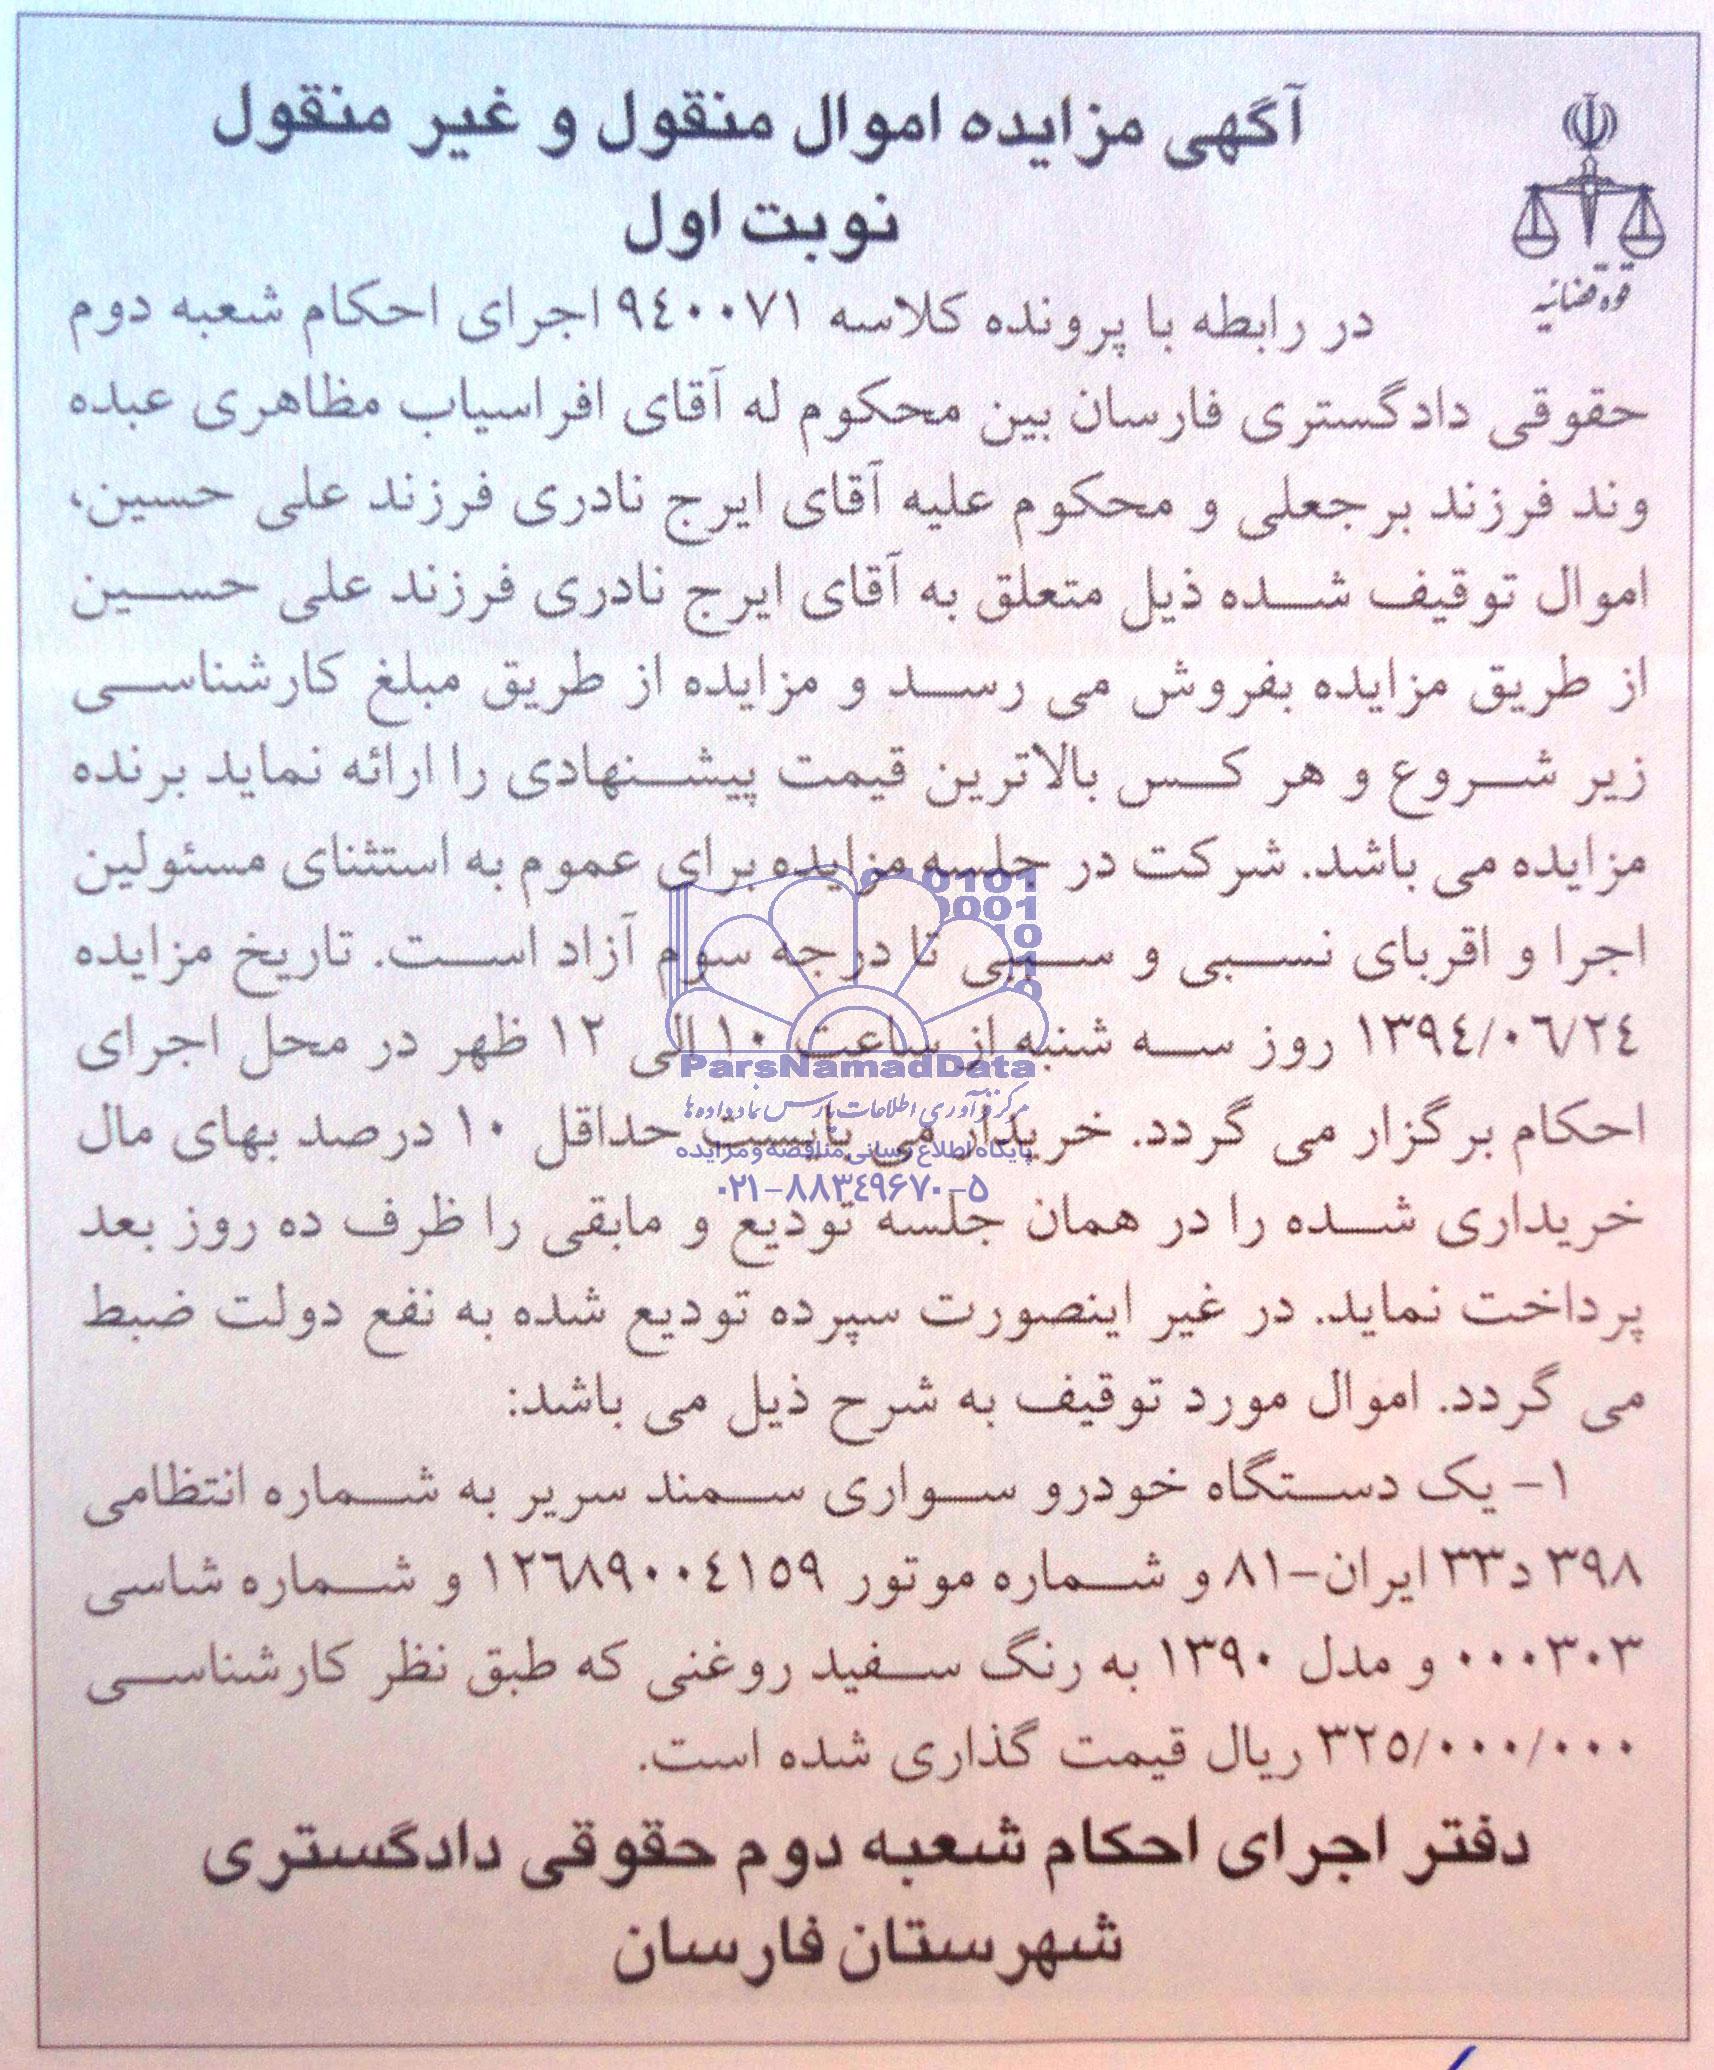 آگهی مزایده اموال منقول و غیر منقول
نوبت اول
قوه قضائیه
در رابطه با پرونده کلاسه ۹٤۰۰۷۱ اجرای احکام شعبه دوم
حقوقی دادگستری فارسان بین محکوم له آقای افراسیاب مظاهری عبده
وند فرزند برجعلی و محکوم علیه آقای ایرج نادری فرزند علی حسین،
اموال توقیف شده ذیل متعلق به آقای ایرج نادری فرزند علی حسین
از طریق مزایده بفروش می رسد و مزایده از طریق مبلغ کارشناسی
زیر شروع و هر کس بالاترین قیمت پیشنهادی را ارائه نماید برنده
مزایده می باشد. شرکت در جلسه مزایده برای عموم به استثنای مسئولین
اجرا و اقربای نسبی و سببی تا درجه سوم آزاد است. تاریخ مزایده
۱۳۹٤/۰٦/۲٤ روز سه شنبه از ساعت ۱۰ الی ۱۲ ظهر در محل اجرای
احکام برگزار می گردد. خریدار می بایست حداقل ۱۰ درصد بهای مال
خریداری شده را در همان جلسه تودیع و مابقی را ظرف ده روز بعد
پرداخت نماید. در غیر اینصورت سپرده تودیع شده به نفع دولت ضبط
می گردد. اموال مورد توقیف به شرح ذیل می باشد:
۱- یک دستگاه خودرو سواری سمند سریر به شماره انتظامی
۳۹۸ د۳۳ ایران-۸۱ و شماره موتور ۱۲٦۸۹۰۰٤۱۵۹ و شماره شاسی
۰۰۰۳۰۳ و مدل ۱۳۹۰ به رنگ سفید روغنی که طبق نظر کارشناسی
۳۲۵/۰۰۰/۰۰۰ ریال قیمت گذاری شده است.
دفتر اجرای احکام شعبه دوم حقوقی دادگستری
شهرستان فارسان
ParsNamadData
مرکز فرآوری اطلاعات پارس نماد داده ها
پایگاه اطلاع رسانی مناقصه و مزایده
۰۲۱-۸۸۳٤۹۶۷۰-۵